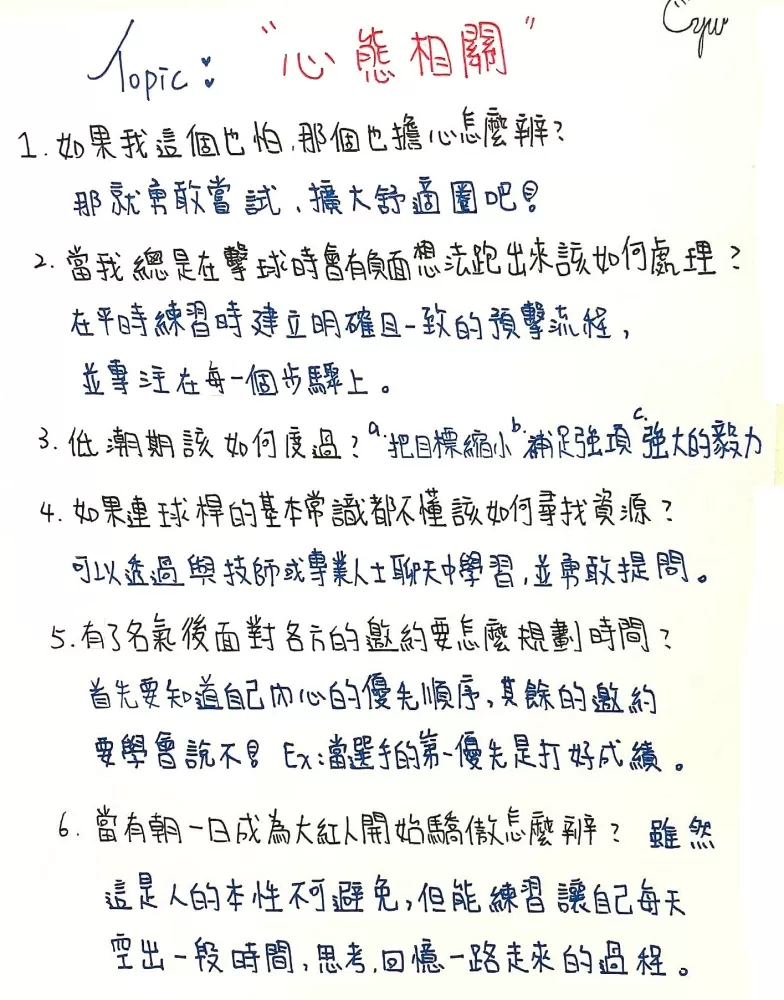 Cyw
Topic: "心態相關"
1. 如果我這個也怕,那個也擔心怎麼辦?
那就勇敢嘗試、擴大舒適圈吧!
2. 當我總是在擊球時會有負面想法跑出來該如何處理?
在平時練習時建立明確且一致的預擊流程,
並專注在每一個步驟上。
3. 低潮期該如何度過? a.把目標縮小 b.補足強項 c.強大的毅力
4. 如果連球桿的基本常識都不懂該如何尋找資源?
可以透過與技師或專業人士聊天中學習,並勇敢提問。
5. 有了名氣後面對各方的邀約要怎麼規劃時間?
首先要知道自己內心的優先順序,其餘的邀約
要學會說不! Ex:當選手的第一優先是打好成績。
6. 當有朝一日成為大紅人開始驕傲怎麼辦? 雖然
這是人的本性不可避免,但能練習讓自己每天
空出一段時間,思考,回憶一路走來的過程。